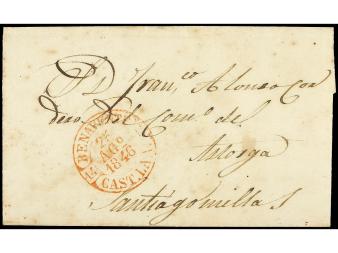 D. Fran.co Alonso Cor
dero del Com.o de
Astorga
Santiagomillas
BENAVENTE
25
AGO
1846
CAST. LA V.